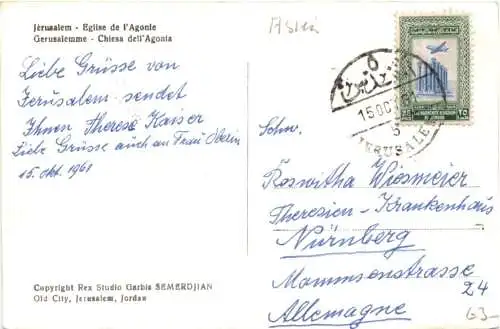 Jérusalem - Eglise de l'Agonie
Gerusalemme - Chiesa dell'Agonia
Liebe Grüsse von
Jerusalem sendet
Ihnen Therese Kaiser
Liebe Grüsse auch an Frau Oberin
15. Okt. 1961
Copyright Rex Studio Garbis SEMERDJIAN
Old City, Jerusalem, Jordan
15 OC
JERUSALE
THE HASHEMITE KINGDOM
OF JORDAN
25
٢٥
Schw.
Roswitha Wiesmeier
Theresien-Krankenhaus
Nürnberg
Mommsenstrasse
24
Allemagne
G3-